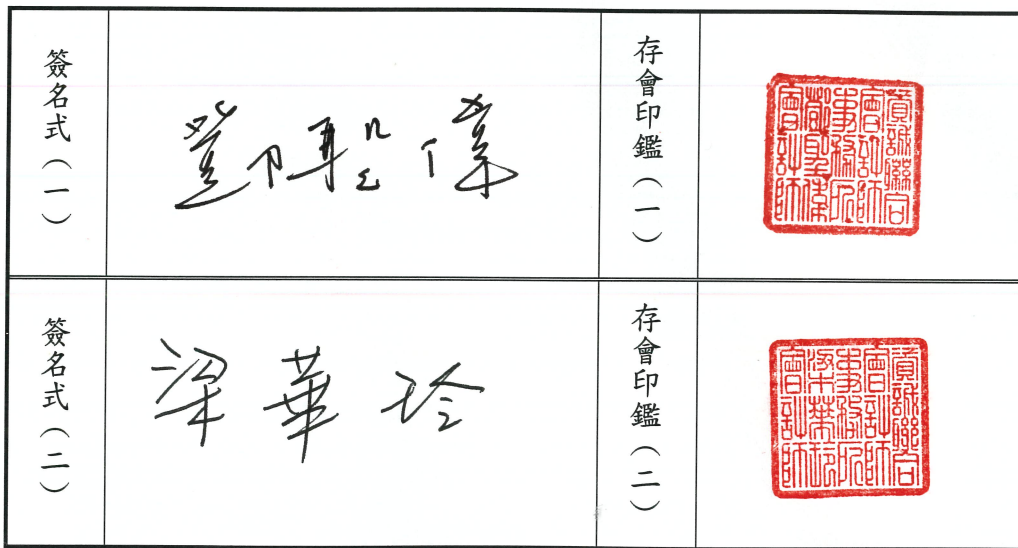 簽名式（一）
鄧聖偉
存會印鑑（一）
資誠聯合
會計師
事務所
鄧聖偉
會計師
簽名式（二）
梁華玲
存會印鑑（二）
資誠聯合
會計師
事務所
梁華玲
會計師